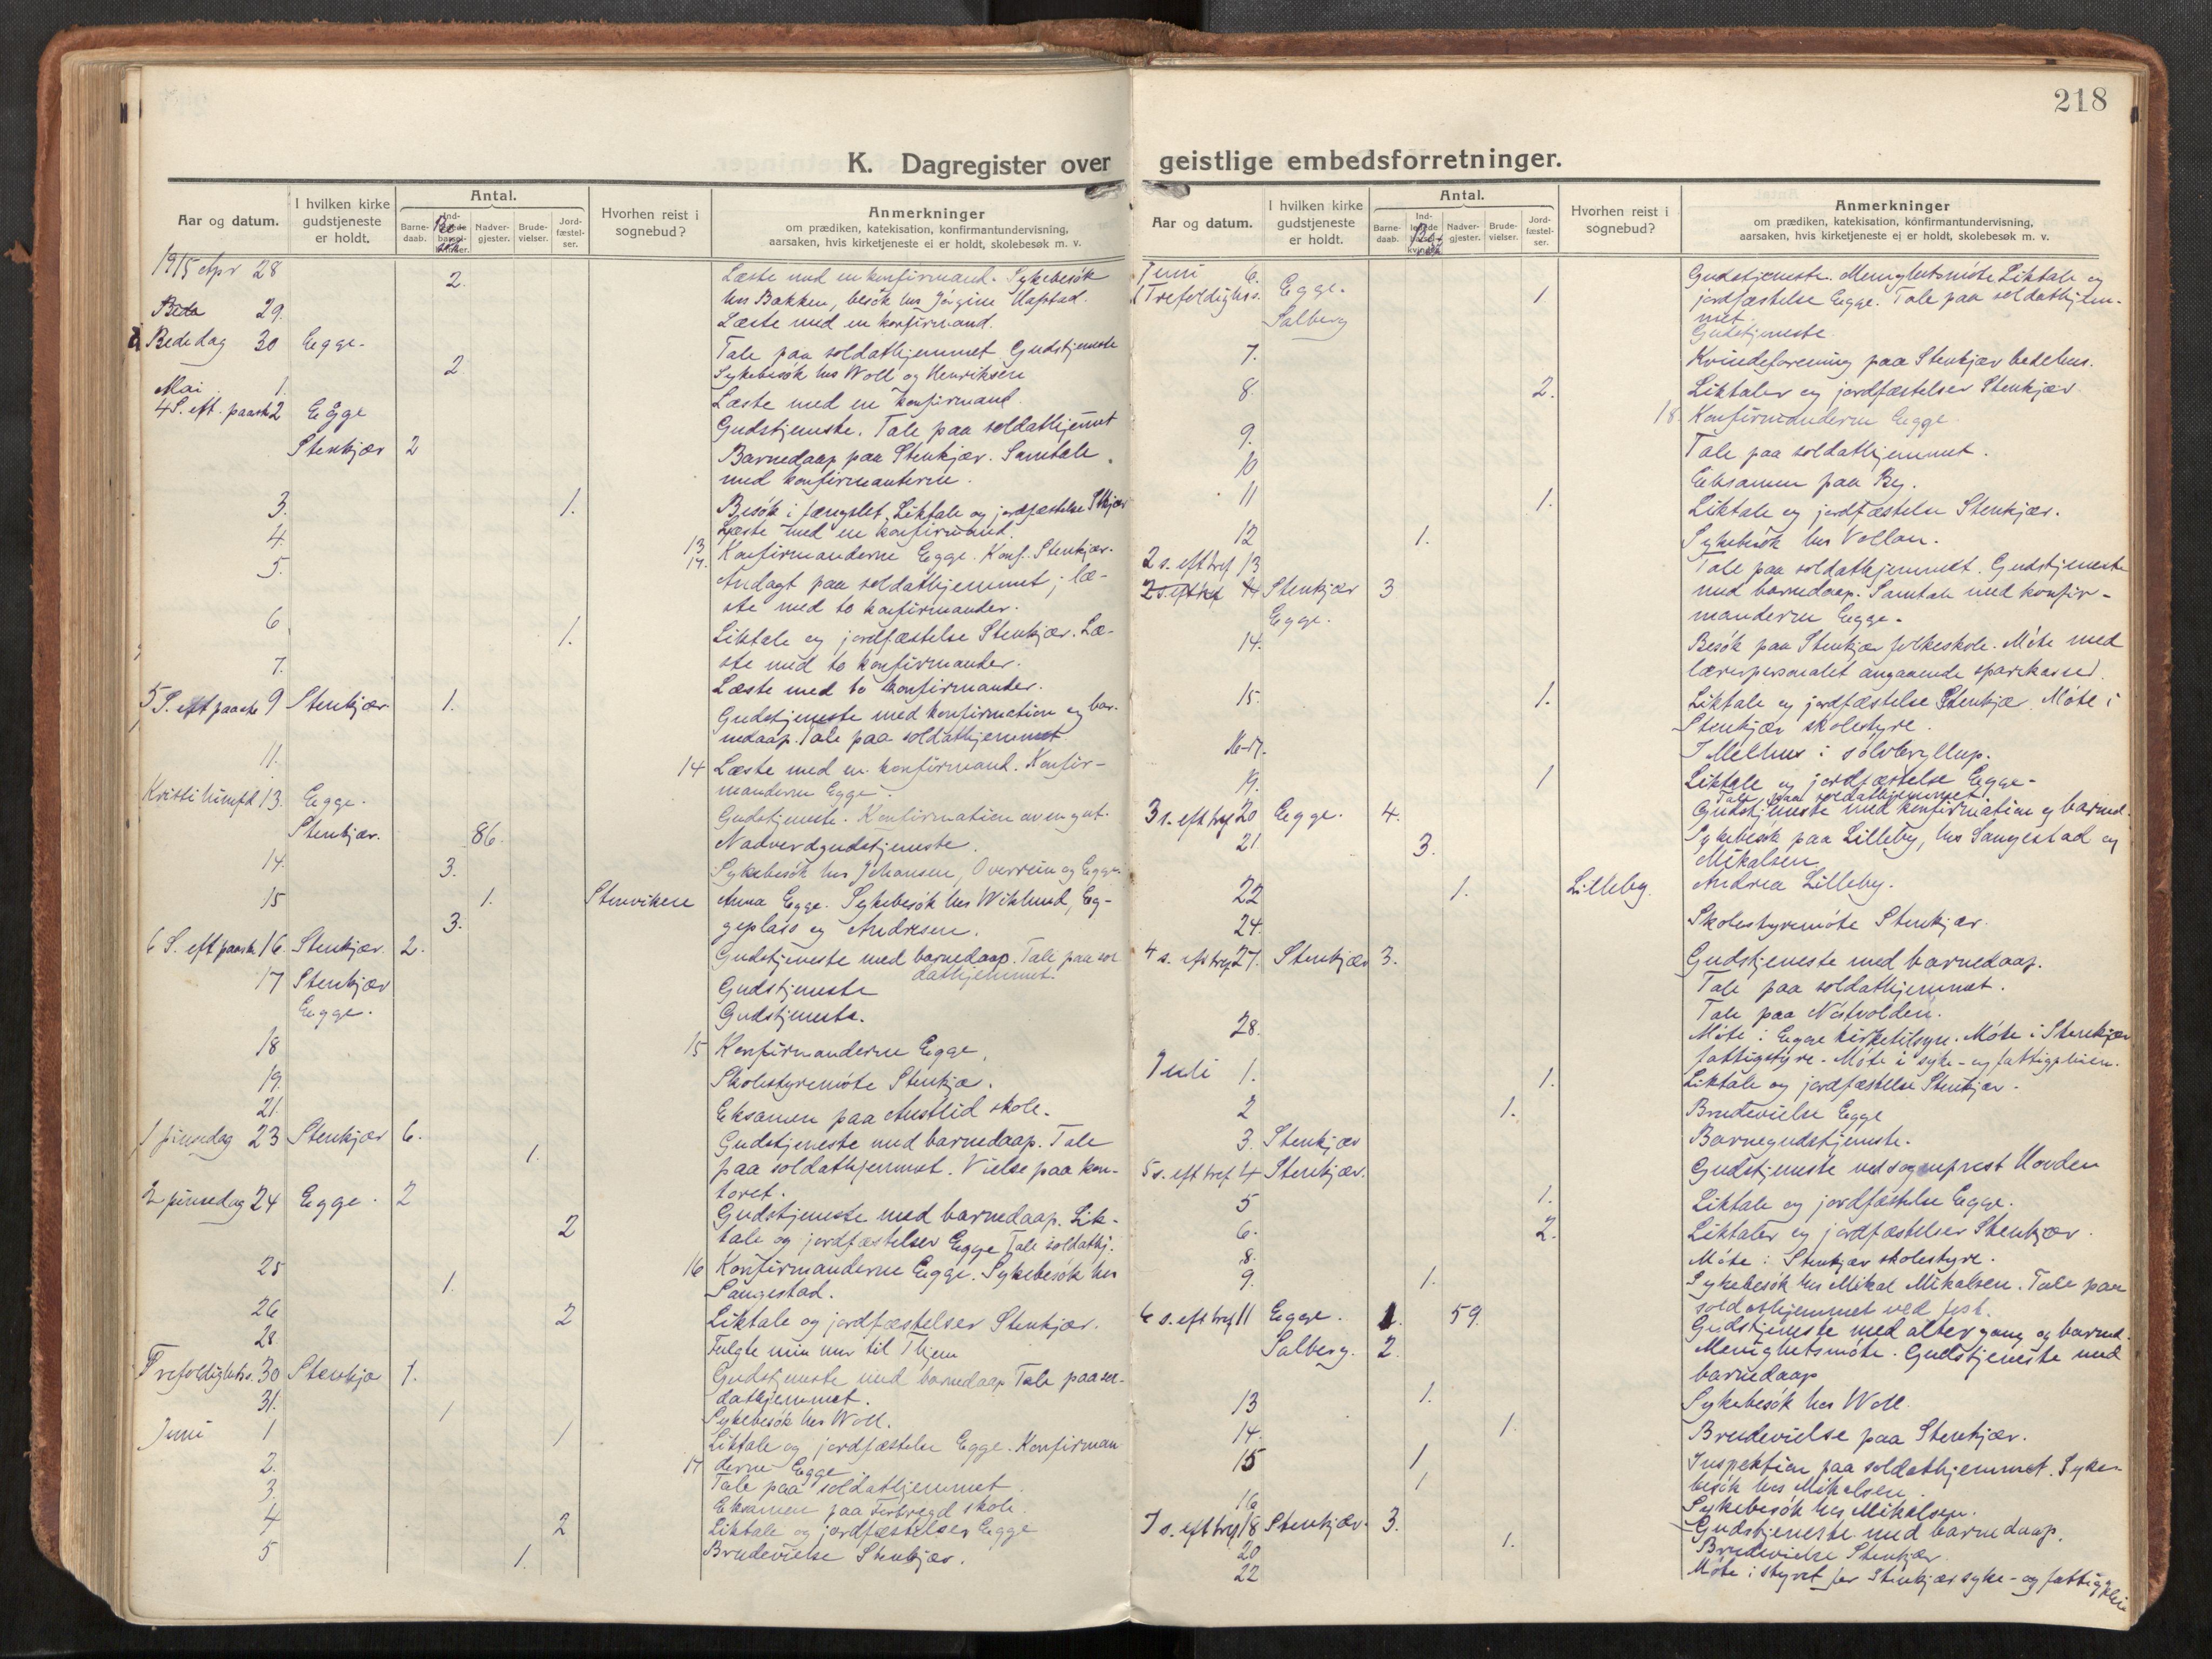 218
K. Dagregister over geistlige embedsforretninger.
Aar og datum.
I hvilken kirke gudstjeneste er holdt.
Antal.
Barne-daab.
Nadver-gjester.
Brude-vielser.
Jord-fæstel-ser.
Hvorhen reist i sognebud?
Anmerkninger
om prædiken, katekisation, konfirmantundervisning,
aarsaken, hvis kirketjeneste ei er holdt, skolebesøk m. v.
1915 Apr 28 2. Læste med en konfirmand. Sykebesøk
hos Bakken, besøk hos Jørgine
29. Læste med en konfirmand.
Bededag 30 Egge. Tale paa soldathjemmet Gudstjeneste
2. Sykebesøk hos Woll og Henriksen
Mai 1. Læste med en konfirmand
4 S. eft. paaske 2 Egge Gudstjeneste. Tale paa soldathjemmet
Stenkjær 2 Barnedaap paa Stenkjær. Samtale
med konfirmanterne.
3. 1. Besøk i fængslet, Liktale og jordfæstelse Stkjær
4. Læste med en konfirmand.
13 Konfirmanderne Egge. Konf. Stenkjær.
5. 14. Andagt paa soldathjemmet; læ-
ste med to konfirmander.
6 1. Liktale og jordfæstelse Stenkjær. Læ-
ste med to konfirmander.
7. Læste med to konfirmander.
5 S. eft paaske 9 Stenkjær 1. Gudstjeneste med konfirmation og bar-
nedaap. Tale paa soldathjemmet
11. 14 Læste med en konfirmand. Konfir-
manderne Egge.
Kristi himfd. 13. Egge. Gudstjeneste. Konfirmation av en gut.
Stenkjær. 86. Nadverdgudstjeneste.
14. 3. Sykebesøk hos Johansen, Overrein og Egge.
15 1. Stenviken Anna Egge. Sykebesøk hos Wiklund, Eg-
3. geplass og Andresen.
6 S. eft paaske 16. Stenkjær. 2. Gudstjeneste med barnedaap. Tale paa sol
dathjemmet.
17 Stenkjær Gudstjeneste
Egge. Gudstjeneste.
18 15 Konfirmanderne Egge.
19. Skolestyremøte Stenkjær.
21. Eksamen paa Austlid skole.
1 pinsedag 23 Stenkjær 6. Gudstjeneste med barnedaap. Tale
1. paa soldathjemmet. Vielse paa kon-
toret.
2 pinsedag 24 Egge. 2 Gudstjeneste med barnedaap. Lik-
2 tale og jordfæstelser Egge Tale soldathj.
25 16 Konfirmanderne Egge. Sykebesøk hos
1. Langestad.
26 2 Liktale og jordfæstelser Stenkjær.
28 Fulgte min mor til Thjem
Trefoldighets. 30 Stenkjær 1. Gudstjeneste med barnedaap Tale paa sol-
dathjemmet.
31. 1 Sykebesøk hos Woll.
Juni 1 1 Liktale og jordfæstelse Egge. Konfirman
17 derne Egge
2. Tale paa soldathjemmet.
3. Eksamen paa Forbregd skole.
4 2 Liktale og jordfæstelser Egge
5 1. Brudevielse Stenkjær.
Aar og datum.
I hvilken kirke gudstjeneste er holdt.
Antal.
Barne-daab.
Nadver-gjester.
Brude-vielser.
Jord-fæstel-ser.
Hvorhen reist i sognebud?
Anmerkninger
om prædiken, katekisation, konfirmantundervisning,
aarsaken, hvis kirketjeneste ei er holdt, skolebesøk m. v.
Juni 6. Gudstjeneste. Menighetsmøte Liktale og
1 Trefoldighs. Egge. 1. jordfæstelse Egge. Tale paa soldathjem-
met.
Salberg Gudstjeneste
7. Kvindeforening paa Stenkjær bedehus.
8. 2. Liktaler og jordfæstelser Stenkjær.
18 Konfirmanderne Egge.
9. Tale paa soldathjemmet.
10 Eksamen paa By.
11 1. Liktale og jordfæstelse Stenkjær.
12 1. Sykebesøk hos Vollan.
2 s. eft tref 13 Tale paa soldathjemmet. Gudstjeneste
2 s. eft tref 14 Stenkjær 3 med barnedaap. Samtale med konfir-
Egge. manderne Egge.
14. Besøk paa Stenkjær folkeskole. Møte med
lærerpersonalet angaaende sparekasse.
15. 1. Liktale og jordfæstelse Stenkjær. Møte i
Stenkjær skolestyre.
16-17. I Melhus i sølvbryllup.
19. 1 Liktale og jordfæstelse Egge.
Tale paa soldathjemmet
3 s. eft tref 20 Egge. 4. Gudstjeneste med konfirmation og barned.
21. 3. Sykebesøk paa Lilleby, hos Langestad og
Mikalsen
22 1. Lilleby. Andrea Lilleby.
24. Skolestyremøte Stenkjær.
4 s. eft tref 27. Stenkjær 3. Gudstjeneste med barnedaap.
Tale paa soldathjemmet.
Tale paa Nøstvolden.
28. Møte i Egge kirketilsyn. Møte i Stenkjær
fattigstyre. Møte i syke- og fattigpleien.
Juli 1. 1. Liktale og jordfæstelse Stenkjær.
2 1. Brudevielse Egge
3. Stenkjær Barnegudstjeneste.
5 s. eft tref 4 Stenkjær. Gudstjeneste ved sogneprest Hovden
5 1. Liktale og jordfæstelse Egge.
6. 2. Liktaler og jordfæstelser Stenkjær.
8. Møte i Stenkjær skolestyre.
9. 1. Sykebesøk hos Mikal Mikalsen. Tale paa
soldathjemmet ved fest.
6 s. eft tref 11 Egge. 1. 59. Gudstjeneste med altergang og barned.
Salberg. 2. Menighetsmøte. Gudstjeneste med
barnedaap
13 1. Sykebesøk hos Woll.
14. 1. Brudevielse paa Stenkjær.
15 1 Inspektion paa soldathjemmet. Syke-
1 besøk hos Mikalsen.
16 Sykebesøk hos Mikalsen.
7 s. eft tref 18 Stenkjær. 3. Gudstjeneste med barnedaap.
20 1. Brudevielse Stenkjær.
22 Møte i styret for Stenkjær syke- og fattigpleie